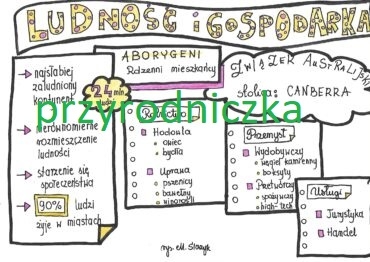 LUDNOŚĆ i GOSPODARKA
→ najsłabiej
zaludniony
kontynent
→ nierównomierne
rozmieszczenie
ludności
→ starzenie się
społeczeństwa
→ 90% ludzi
żyje w miastach
24 mln
ABORYGENI
Rdzenni mieszkańcy
ZWIĄZEK AUSTRALIJSKI
stolica: CANBERRA
przyrodniczka
Rolnictwo
Hodowla
owiec
bydła
Uprawa
pszenicy
bawełny
winorośli
Przemysł
Wydobywczy
węgiel kamienny
boksyty
Przetwórczy
spożywczy
high-tech
Usługi
Turystyka
Handel